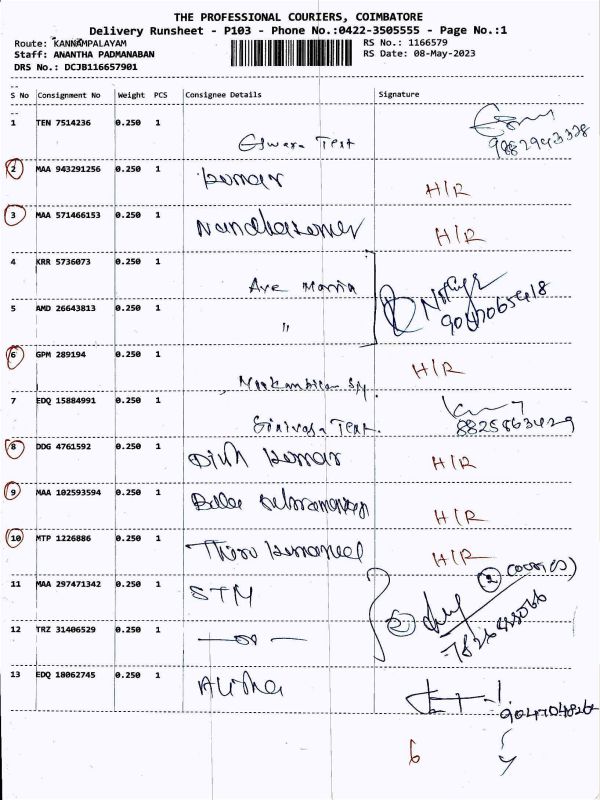 THE PROFESSIONAL COURIERS, COIMBATORE
Delivery Runsheet - P103 - Phone No.:0422-3505555 - Page No.:1
Route: KANNAMPALAYAM
RS No.: 1166579
Staff: ANANTHA PADMANABAN
RS Date: 08-May-2023
DRS No.: DCJB116657901
--
S No Consignment No Weight PCS Consignee Details Signature
--
1 TEN 7514236 0.250 1
Eswara Text 9882943328
2 MAA 943291256 0.250 1
kumar H/R
3 MAA 571466153 0.250 1
Nandhakumar H/R
4 KRR 5736073 0.250 1
Ave Maria
5 AMD 26643813 0.250 1
" 9047065418
6 GPM 289194 0.250 1 H/R
7 EDQ 15884991 0.250 1
Srinivasa Text. 8825863429
8 DDG 4761592 0.250 1
kumar H/R
9 MAA 102593594 0.250 1
Bala subramaniyan H/R
10 MTP 1226886 0.250 1
Thiru kumaran H/R
11 MAA 297471342 0.250 1
STM
2
12 TRZ 31406529 0.250 1
13 EDQ 18062745 0.250 1
6